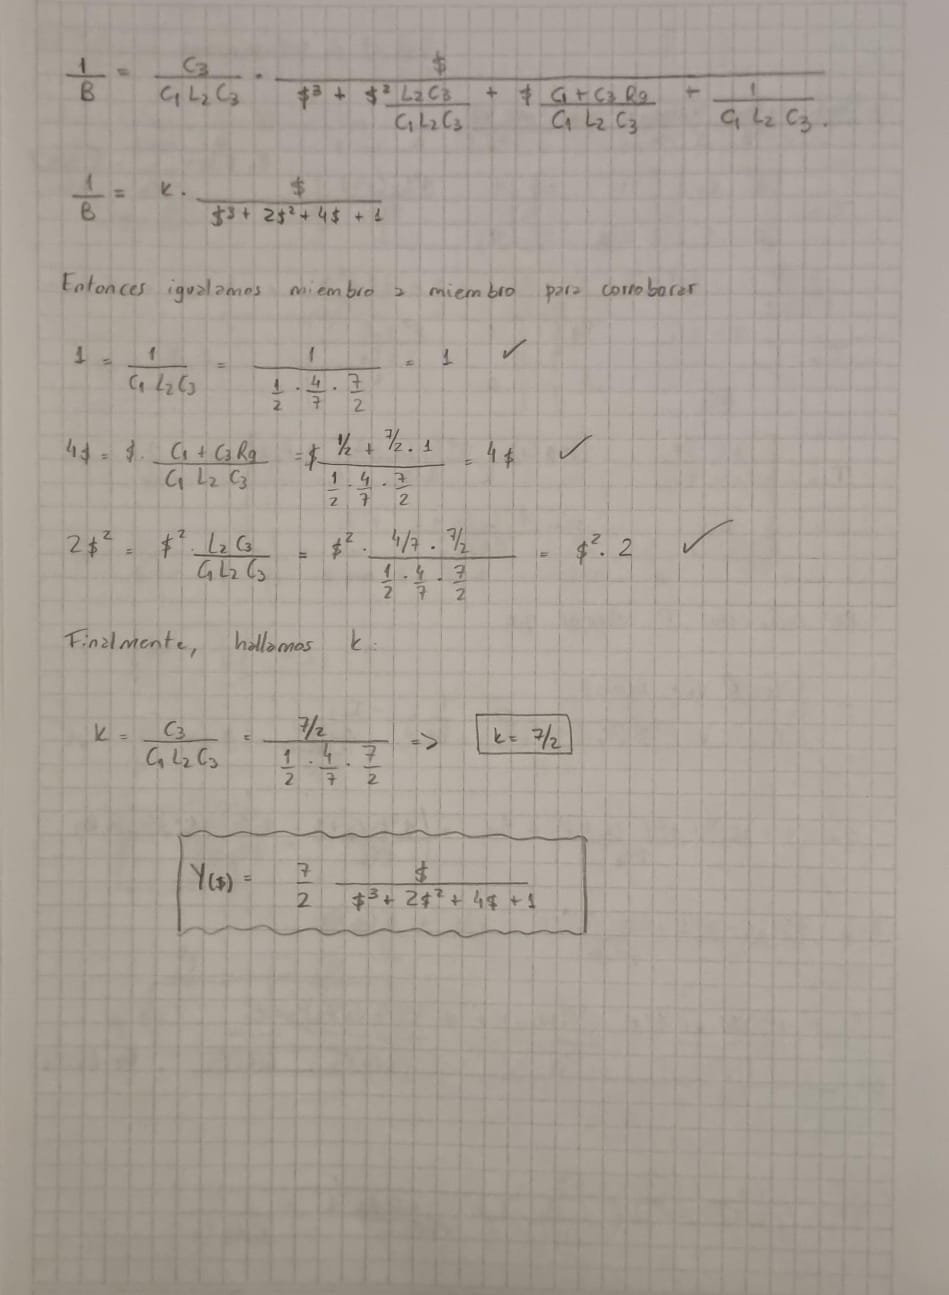 1/B = C3/(C1 L2 C3) · $/($³ + $² L2C3/(C1L2C3) + $ (C1+C3 Rg)/(C1 L2 C3) + 1/(C1 L2 C3)).
1/B = k · $/($³ + 2$² + 4$ + 1)
Entonces igualamos miembro a miembro para corroborar
1 = 1/(C1 L2C3) = 1/(1/2 · 4/7 · 7/2) = 1 ✓
4$ = $ · (C1 + C3Rg)/(C1 L2 C3) = $ (1/2 + 7/2 · 1)/(1/2 · 4/7 · 7/2) = 4$ ✓
2$² = $² · L2 C3/(C1L2C3) = $² · (4/7 · 7/2)/(1/2 · 4/7 · 7/2) = $² · 2 ✓
Finalmente, hallamos k:
k = C3/(C1L2C3) = (7/2)/(1/2 · 4/7 · 7/2) => k = 7/2
Y($) = 7/2 $/($³ + 2$² + 4$ + 1)